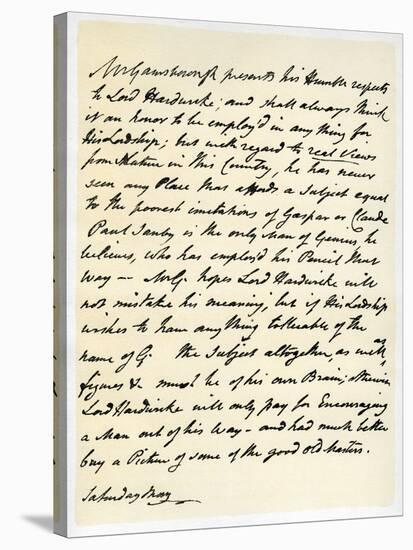 Mr Gainsborough presents his Humble respects
to Lord Hardwicke; and shall always think
it an honor to be employ'd in any thing for
His Lordship; but with regard to real Views
from Nature in this Country, he has never
seen any Place that affords a Subject equal
to the poorest imitations of Gaspar or Claude
Paul Sanby is the only Man of Genius, he
believes, who has employ'd his Pencil that
Way — Mr G. hopes Lord Hardwicke will
not mistake his meaning, but if His Lordship
wishes to have any thing tollerable of the
name of G. the Subject altogether, as well as
figures &c must be of his own Brain; otherwise
Lord Hardwicke will only pay for Encouraging
a Man out of his Way – and had much better
buy a Picture of some of the good old Masters.
Saturday Morg